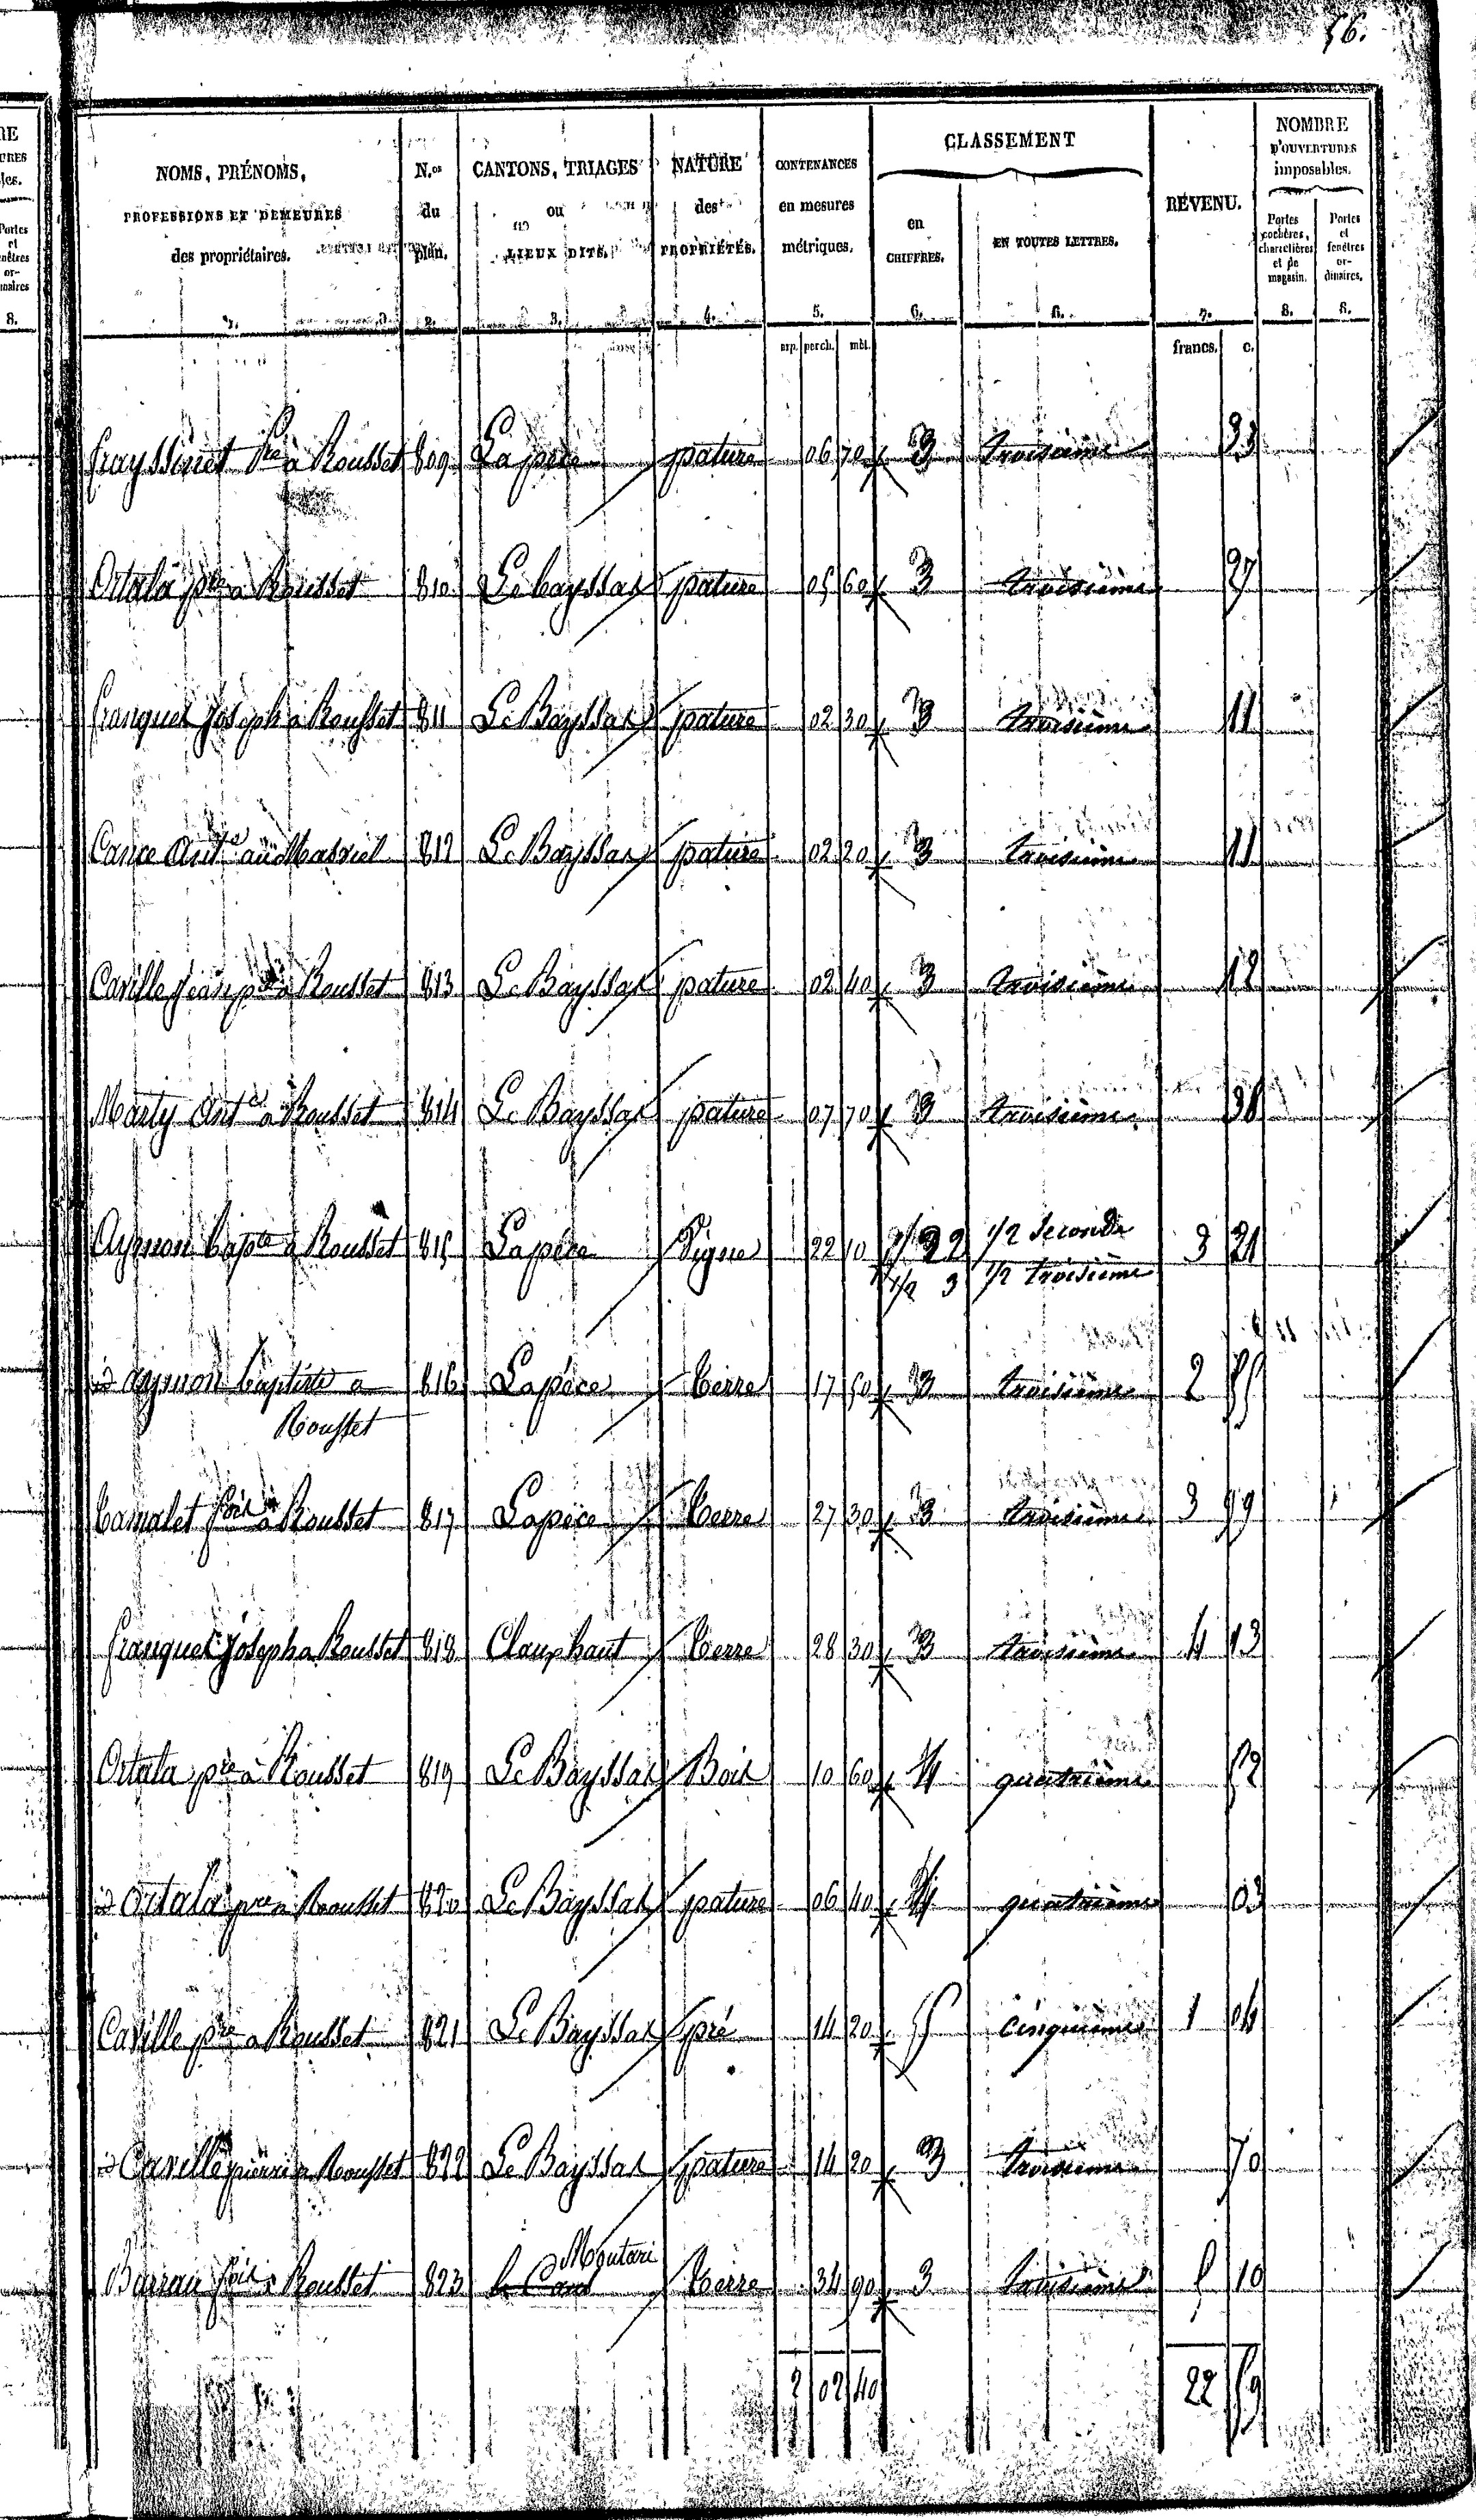 56.
NOMS, PRÉNOMS, PROFESSIONS ET DEMEURES des propriétaires. 1.
N.os du plan. 2.
CANTONS, TRIAGES ou LIEUX DITS. 3.
NATURE des PROPRIÉTÉS. 4.
CONTENANCES en mesures métriques. 5.
CLASSEMENT
en CHIFFRES. 6.
EN TOUTES LETTRES. 6.
REVENU. 7.
NOMBRE D'OUVERTURES imposables.
Portes cochères, charretières et de magasin. 8.
Portes et fenêtres ordinaires. 8.
arp. perch. mèt. francs. c.
frayssinet pre à Rousset 809 Lapèce pature 06 70 3 troisième 33
Ortala pre à Rousset 810 Le bayssas pature 05 60 3 troisième 27
franquet joseph à Rousset 811 Le Bayssas pature 02 30 3 troisième 11
Cance Ant.e au 812 Le Bayssas pature 02 20 3 troisième 11
Caville jean à Rousset 813 Le Bayssas pature 02 40 3 troisième 12
Marty Ant.e à Rousset 814 Le Bayssas pature 07 70 3 troisième 38
Aymon bapte à Rousset 815 Lapèce Vigne 22 10 1/2 2 1/2 seconde 3 21
1/2 3 1/2 troisième
id aymon baptiste a 816 Lapèce terre 17 50 3 troisième 2 55
Rousset
Camalet fois à Rousset 817 Lapèce terre 27 30 3 troisième 3 99
franquet joseph a Rousset 818 Clauphaut terre 28 30 3 troisième 4 13
Ortala pre à Rousset 819 Le Bayssas Bois 10 60 4 quatrième 52
id Ortala pre a Rousset 820 Le Bayssas pature 06 40 4 quatrième 03
Caville pre a Rousset 821 Le Bayssas pré 14 20 5 cinquième 1 04
id Caville pierre a Rousset 822 Le Bayssas pature 14 20 3 troisième 70
Moutari
Barrau fois à Rousset 823 terre 34 90 3 troisième 5 10
2 02 40 22 59